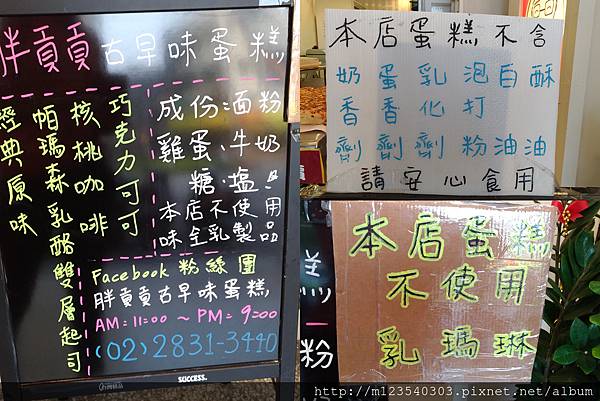 胖貢貢古早味蛋糕
巧克力可可
核桃咖啡
帕瑪森乳酪雙層起司
經典原味
成份:麵粉
雞蛋、牛奶
糖、塩
本店不使用
味全乳製品
Facebook 粉絲團
胖貢貢古早味蛋糕
AM=11:00 ～ PM=9:00
(02)2831-3440
SUCCESS.
本店蛋糕不含
奶香劑
蛋香劑
乳化劑
泡打粉
白油
酥油
請安心食用
本店蛋糕
不使用
乳瑪琳
粉
http://m123540303.pixnet.net/album